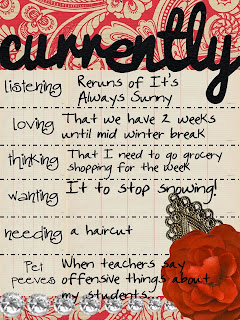 currently
listening Reruns of It's
Always Sunny
loving That we have 2 weeks
until mid winter break
thinking That I need to go grocery
shopping for the week
wanting It to stop snowing!
needing a haircut
Pet When teachers say
peeves offensive things about
my students...